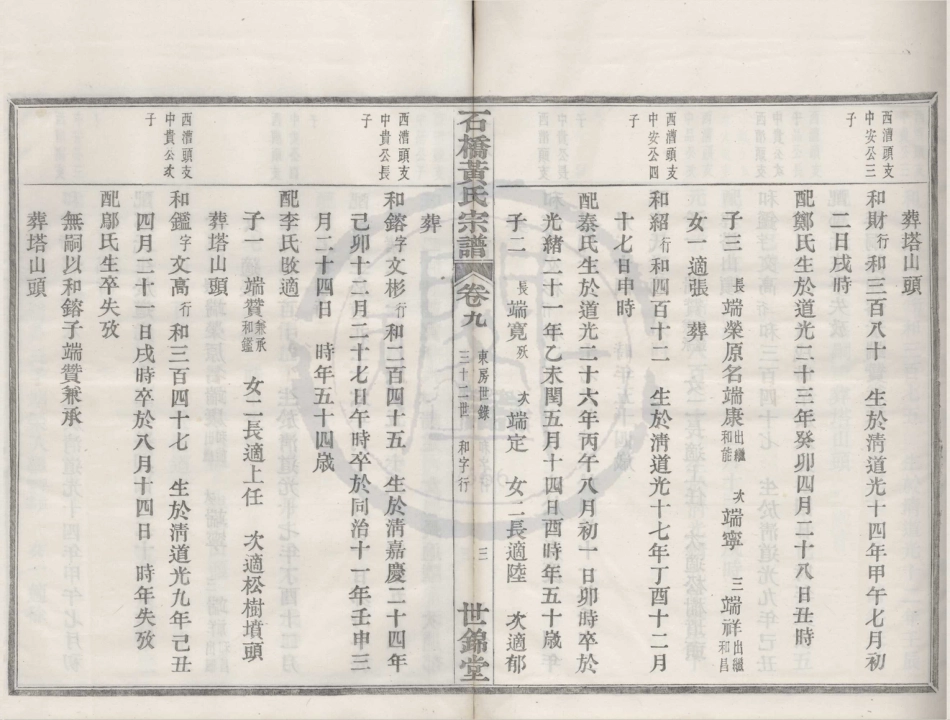 葬塔山頭
西漕頭支
中安公三
子
和財行和三百八十　生於淸道光十四年甲午七月初
二日戌時
配鄭氏生於道光二十三年癸卯四月二十八日丑時
子三　長端榮原名端康出繼和能　次端寧　三端祥出繼和昌
女一適張　葬
西漕頭支
中安公四
子
和紹行和四百十二　生於淸道光十七年丁酉十二月
十七日申時
配秦氏生於道光二十六年丙午八月初一日卯時卒於
光緒二十一年乙未閏五月十四日酉時年五十歲
子二　長端寬歿　次端定　女二長適陸　次適郁
石橋黃氏宗譜
卷九
東房世錄
三十二世　和字行
三
世錦堂
葬
西漕頭支
中貴公長
子
和鎔字文彬行和二百四十五　生於淸嘉慶二十四年
己卯十二月二十七日午時卒於同治十一年壬申三
月二十四日　時年五十四歲
配李氏改適
子一　端贊兼承和鑑　女二長適上任　次適松樹墳頭
葬塔山頭
西漕頭支
中貴公次
子
和鑑字文高行和三百四十七　生於淸道光九年己丑
四月二十一日戌時卒於八月十四日　時年失攷
配鄔氏生卒失攷
無嗣以和鎔子端贊兼承
葬塔山頭